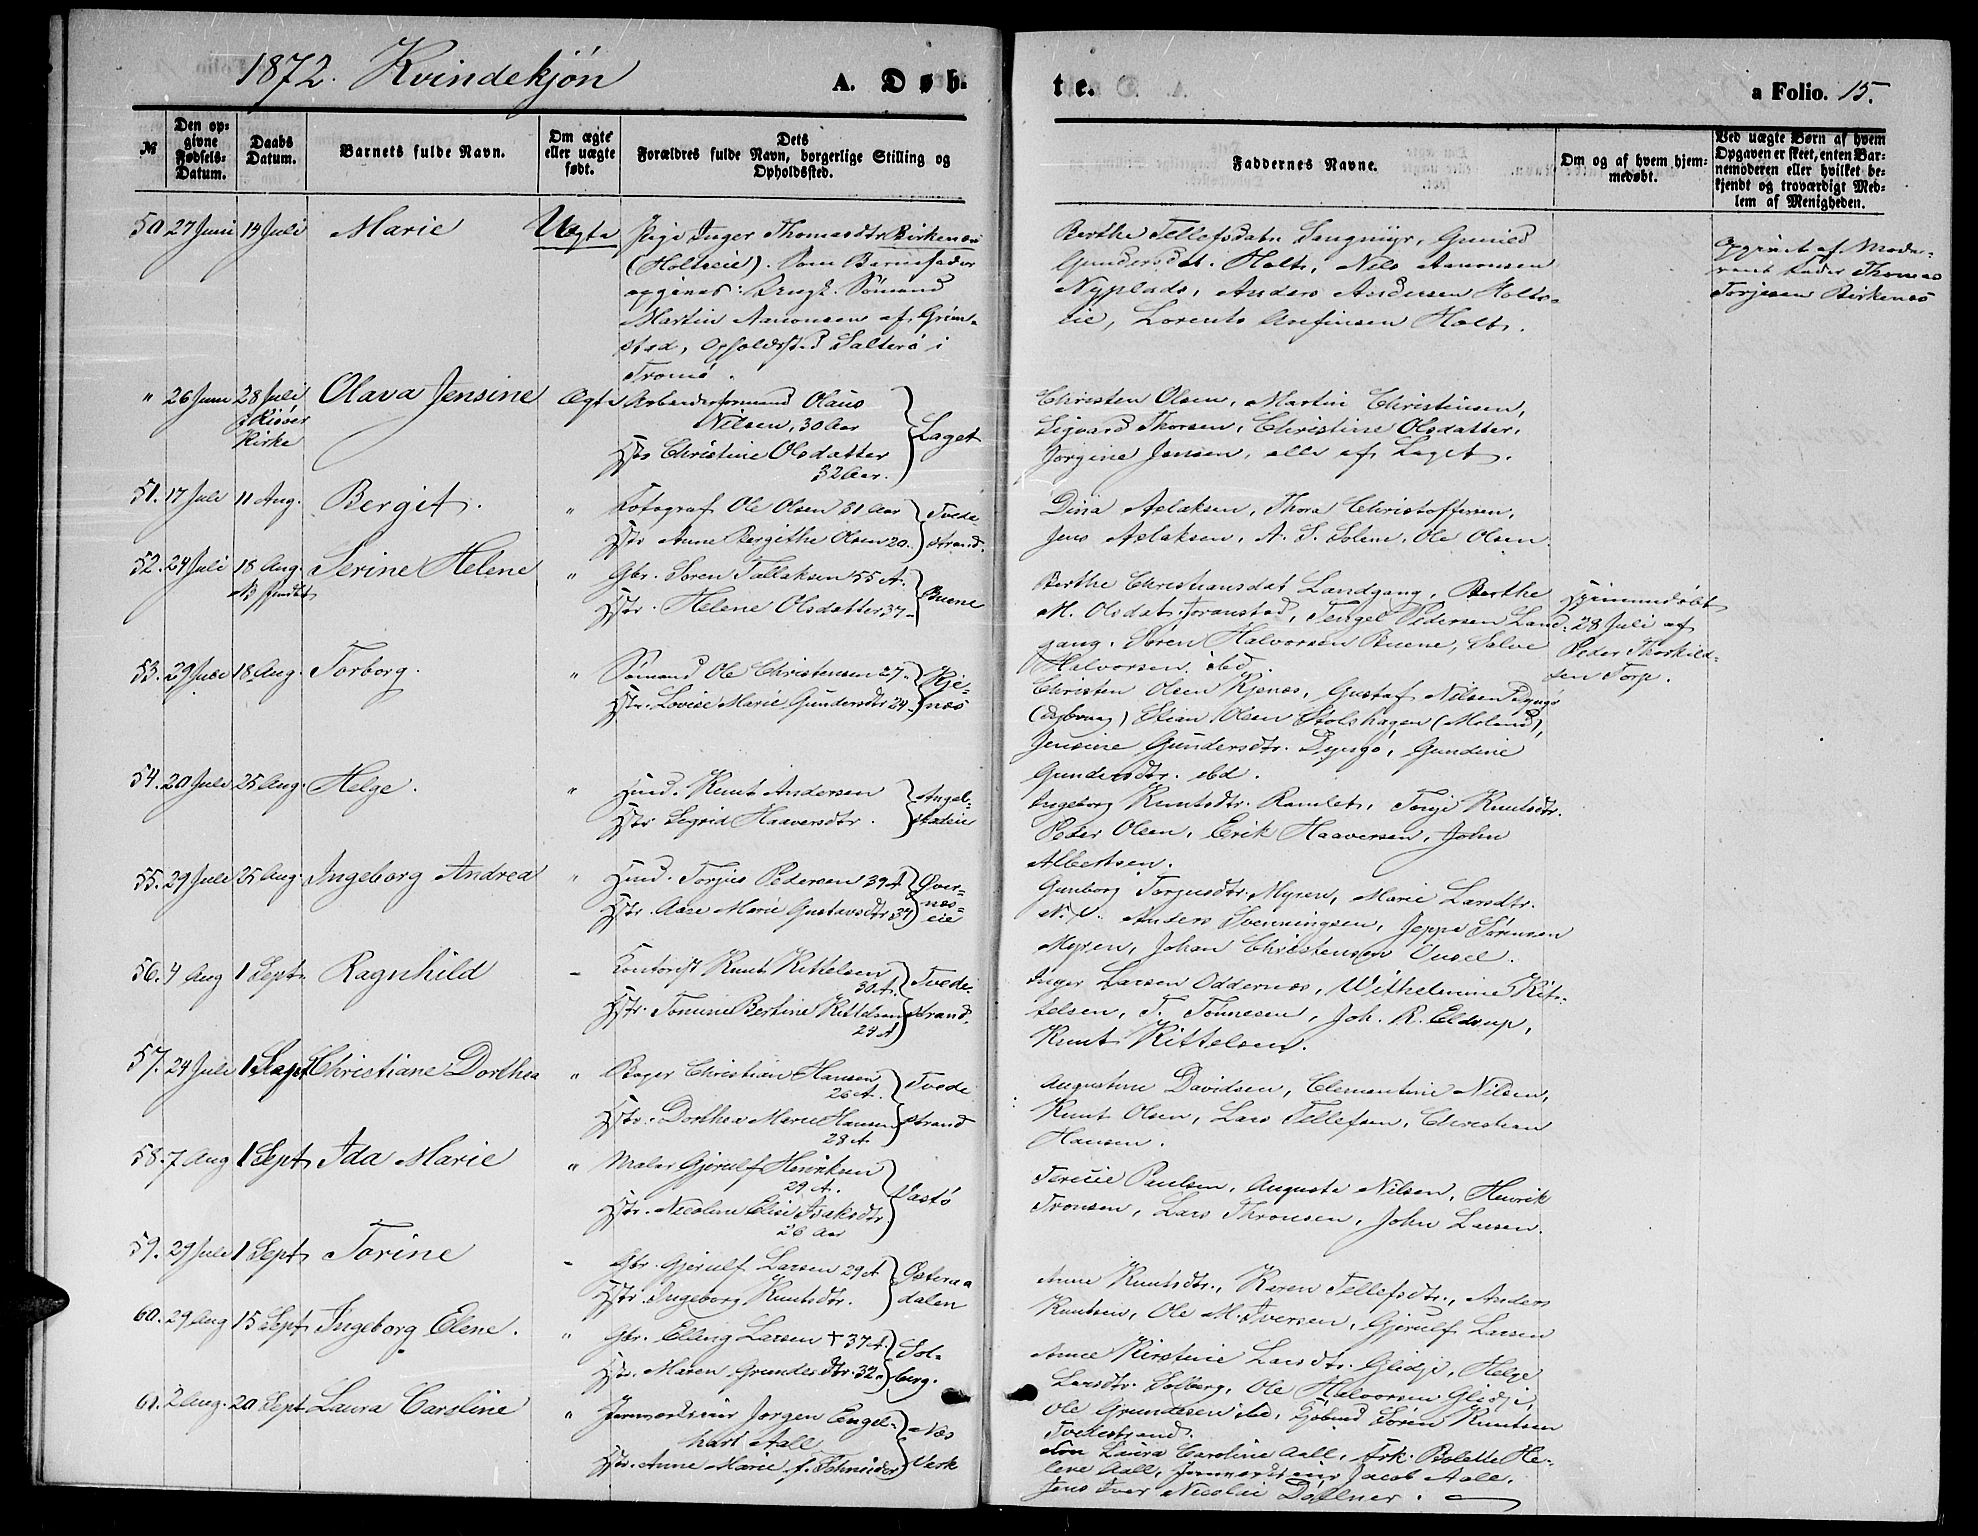 1872. Kvindekjøn
A. Døb-
te.
a Folio. 15.
№
Den opgivne Fødsels-Datum.
Daabs Datum.
Barnets fulde Navn.
Om ægte eller uægte født.
Dets Forældres fulde Navn, borgerlige Stilling og Opholdssted.
Faddernes Navne.
Om og af hvem hjemmedøbt.
Ved uægte Børn af hvem Opgaven er skeet, enten Barnemoderen eller hvilket bekjendt og troværdigt Medlem af Menigheden.
50 27 Juni 14 Juli Marie Uægte Pige Inger Thomasdtr Birkenæs
(Holtseie). Som Barnefader
opgives: Sømand
Martin Aanonsen af Grim-
stad, Opholdssted Salterø i
Tromø.
Berthe Tellefsdatr Langmyr, Gunild
Gundersdat. Holt, Nils Aanonsen
Nyplads, Anders Andersen Holts-
eie, Lorents Arefinsen Holt.
Opgivet af Mode-
rens Fader Thomas
Torjesen Birkenæs
" 26 Juni 28 Juli Olava Jensine Ægte Arbeidsformand Olaus
i Risøer
Kirke
Nilsen, 30 Aar
Hstr Christine Olsdatter
32 Aar.
Laget
Christen Olsen, Martin Christensen,
Sigvard Thorsen, Christine Olsdatter,
Jorgine Jensen, alle af Laget.
51. 17 Juli 11 Aug. Bergit. " Fotograf Ole Olsen 31 Aar
Hstr Anne Bergithe Olsen 20.
Tvede-
strand.
Dina Aslaksen, Thora Christoffersen,
Jens Aslaksen, A. S. Solem, Ole Olsen.
52. 24 Juli 18 Aug. Serine Helene " Gbr. Søren Tallaksen 55 A.
Hstr. Helene Olsdatter 37
Buene
Berthe Christiansdat Landgang, Berthe
M. Olsdat. Joranstad, Tengel Pedersen Land-
gang. Søren Halvorsen Buene, Salve
Halvorsen ibd.
Hjemmedøbt
28 Juli af
Peder Thorkild-
sen Torp.
53. 29 Juli 18 Aug. Torborg. " Sømand Ole Christensen 27
Hstr. Lovise Marie Gundersdtr 24
Kje-
næs
Christen Olsen Kjenæs, Gustaf Nilsen Dyngø
(Dybvaag) Stian Olsen Stolshagen (Moland),
Jensine Gundersdtr. Dyngø, Gundine
Gundersdtr. ibd.
54. 20 Juli 25 Aug. Helge. " Husd. Knut Andersen
Hstr Sigrid Haaversdtr.
Angel-
stadeie
Ingeborg Knutsdtr. Ramlet, Torje Knutsdtr.
Peder Olsen, Erik Haaversen, John
Albertsen.
55. 29 Juli 25 Aug. Ingeborg Andrea " Husd. Torjus Pedersen 39 A
Hstr. Aase Marie Gustavsdtr 34
Øver-
næs-
eie
Gunborg Torjusdtr. Myren, Marie Larsdtr.
N. V. Anders Svenningsen, Jeppe Sørensen
Myren, Johan Christensen Ousel.
56. 4 Aug 1 Sept. Ragnhild - Kontorist Knut Kittelsen
30 A.
Hstr. Tomine Bertine Kittelsen
24 A
Tvede-
strand.
Inger Larsen Oddernæs, Wilhelmine Kit-
telsen, T. Tønnesen, Joh. R. Eldrup,
Knut Kittelsen.
57. 24 Juli 1 Sept Christiane Dorthea " Bager Christian Hansen
26 A.
Hstr. Dorthea Marie Hansen
28 A.
Tvede
strand
Augustine Davidsen, Clementine Nilsen,
Knut Olsen, Lars Tellefsen, Christian
Hansen.
58. 7 Aug 1 Sept Ida Marie " Maler Gjerulf Henriksen
29 A.
Hstr. Nicoline Elise Isaksdtr
26 Aar
Vastø
Tericie Paulsen, Auguste Nilsen, Henrik
Tronsen, Lars Thronsen, John Larsen.
59. 29 Juli 1 Sept Torine - Gbr. Gjerulf Larsen 29 A
Hstr. Ingeborg Knutsdtr.
Østeraa
dalen
Anne Knutsdtr., Karen Tellefsdtr., Anders
Knutsen, Ole M. Iversen, Gjerulf Larsen
60. 29 Aug 15 Sept Ingeborg Elene. " Gbr. Elling Larsen + 37 A.
Hstr. Maren Grundesdtr. 32
Sol-
berg.
Anne Kirstine Larsdtr. Glidje, Helge
Larsdtr. Solberg, Ole Halvorsen Glidje,
Ole Grundesen ibd, Søren Knutsen
Tvedestrand.
61. 2 Aug. 20 Sept. Laura Caroline " Jernværkseier Jørgen Engel-
hart Aall
Hstr. Anne Marie f. Schneider
Næs
Værk
Laura Caroline Aall, Frk. Bolette He-
lene Aall, Jernværkseier Jacob Aall,
Jens Iver Nicolai Døllner.